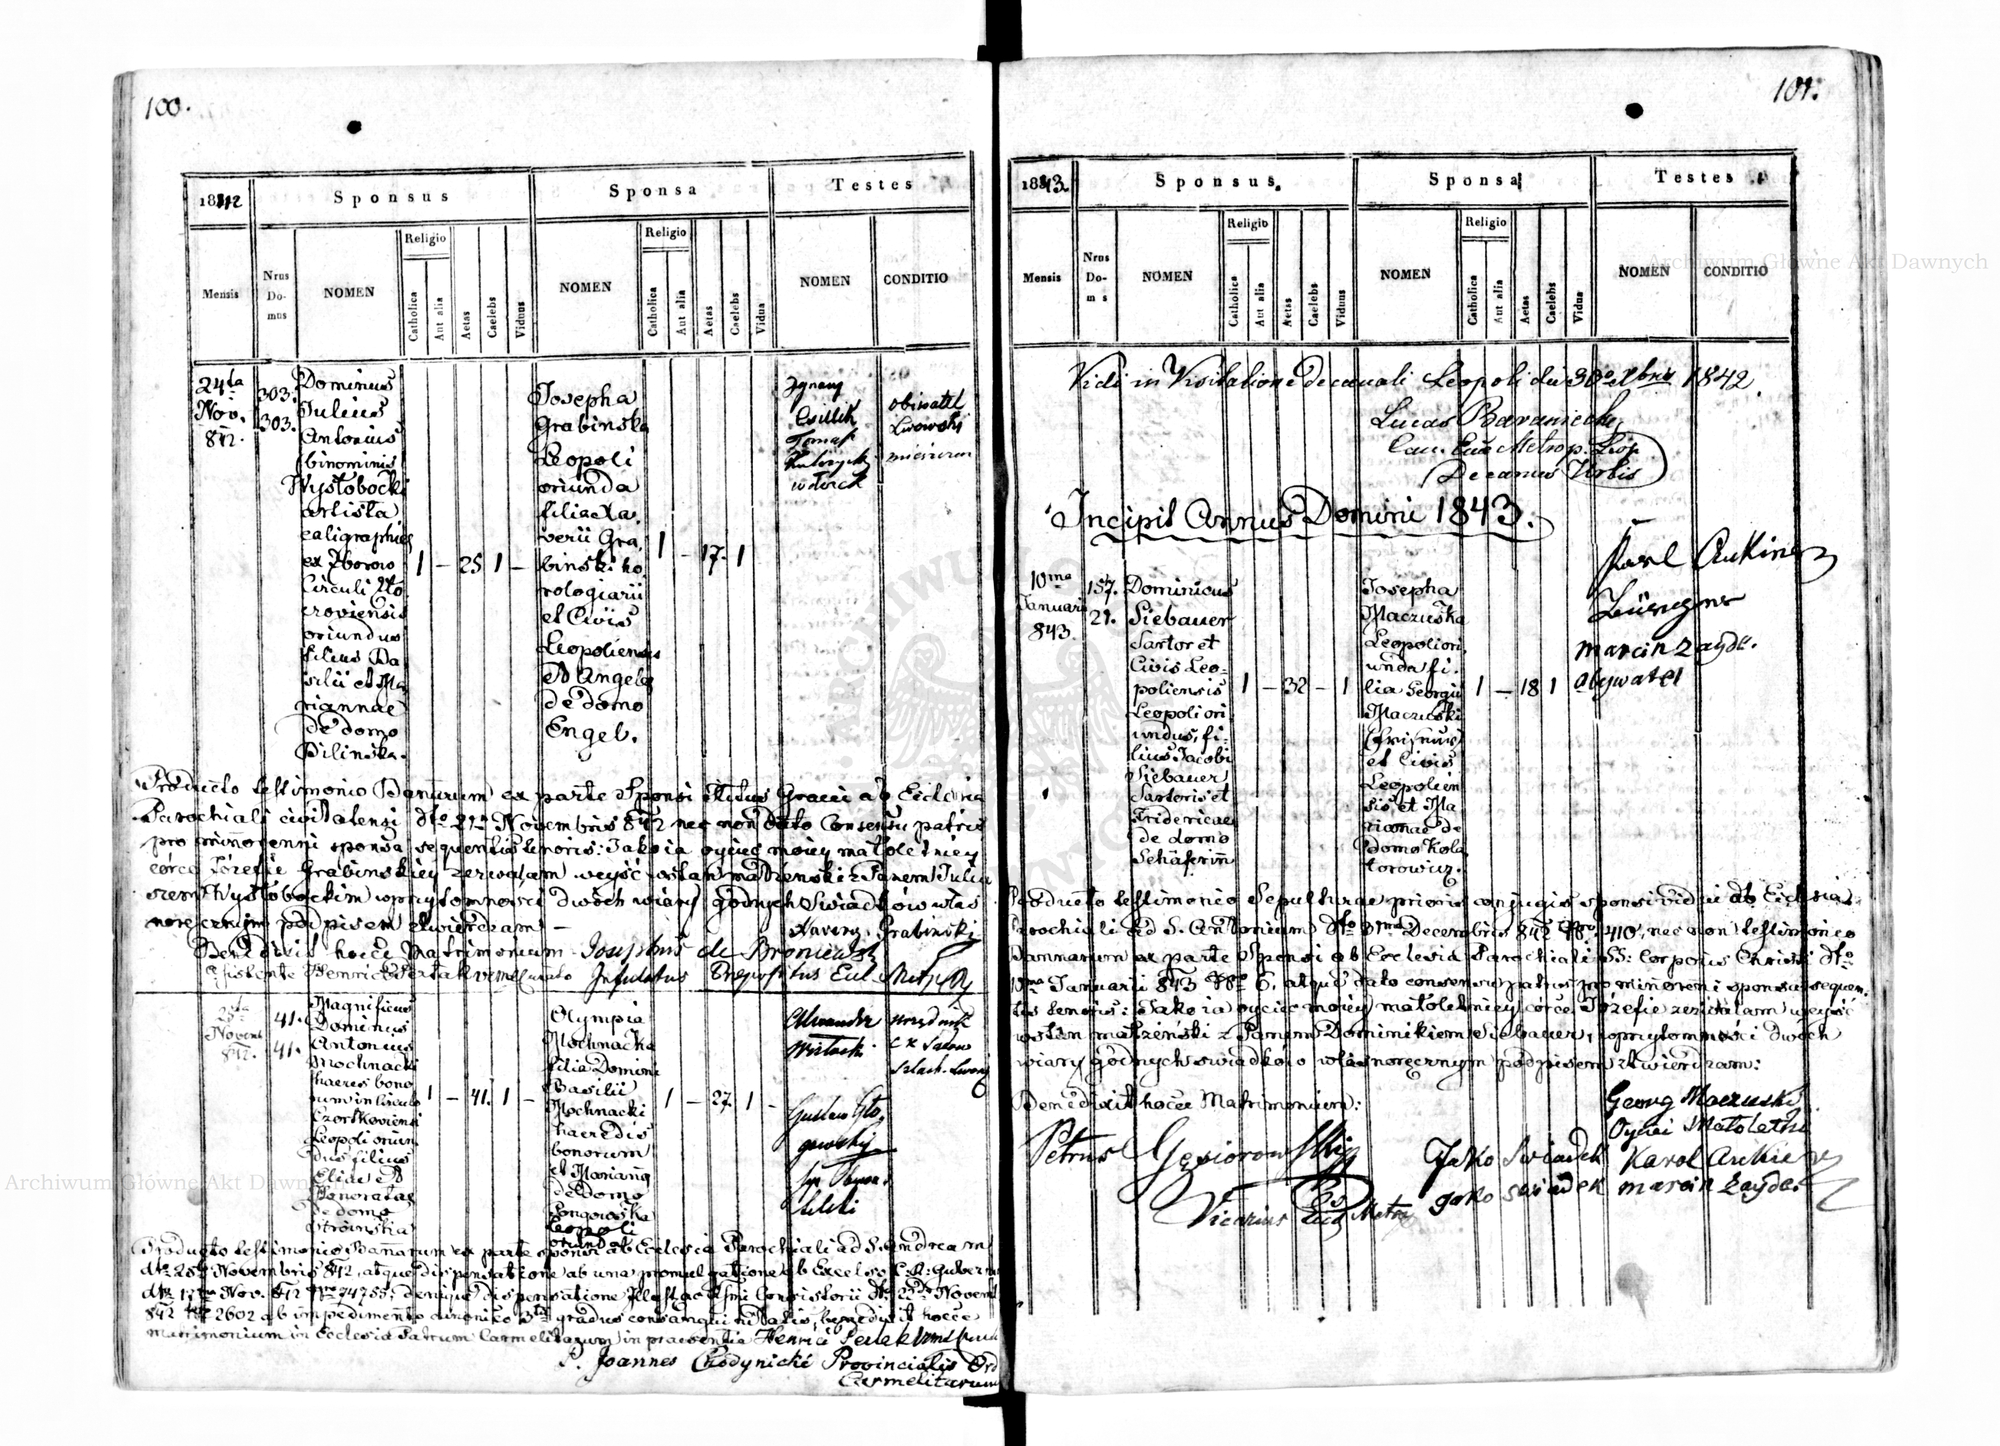 100.
1842
Sponsus
Sponsa
Testes
Mensis
Nrus Domus
NOMEN
Religio
Catholica
Aut alia
Aetas
Caelebs
Viduus
NOMEN
Religio
Catholica
Aut alia
Aetas
Caelebs
Vidua
NOMEN
CONDITIO
24ta
Nov.
842.
303.
303.
Dominus
Julius
Antonius
binominis
Wysłobocki
artista
caligraphies
ex Zborow
Circuli Zło
croviensis
oriundus
filius Ba
silii et Ma
riannae
de domo
Bilinska.
1 — 25 1 —
Josepha
Grabinska
Leopoli
oriunda
filia Xa
verii Gra
binski ho
rologiarii
et Civis
Leopoliensis
et Angela
de domo
Engel.
1 — 17. 1
Ignacy
Tomasz
obiwatel
Lwowski
Producto testimonio Bannorum ex parte Sponsi Ritus Graeci ab Ecclesia
Parochiali civitatensi dto 21a Novembris 842 nec non dato Consensu patris
pro minorenni sponsa sequentis tenoris: Jako ia oyciec moiey małoletniey
córce Józefie Grabinskiey zezwalam weyść wstan małżenski z Panem Juliu
szem Wysłobockim w przytomności dwóch wiary godnych Swiadków włas
noręcznym podpisem stwierdzam —
Xawery Grabinski
Benedixit hocce Matrimonium Josephus de Broniewski
assistente Henrico Infulatus Praepositus Eccl. Metr.
25ta
Novem
842.
41.
41.
Magnificus
Dominus
Antonius
Mochnacki
haeres bono
rum in Circulo
Czortkoviensi
Leopoli oriun
dus filius
Eliae et
Honoratae
de domo
Stroinska
1 — 41. 1 —
Olympia
Mochnacka
filia Domini
Basilii
Mochnacki
haeredis
bonorum
et Marianna
de domo
Longowska
Leopoli
oriunda
1 — 27 1 —
Alexander
Gustaw
Producto testimonio Banorum ex parte sponsi ab Ecclesia Parochiali ad S. Andream
dto 25ta Novembris 842, atque dispensatione ab una promulgatione ab Excelso C. R. Gubernio
dto 17ma Nov. 842 Nro 74755; denique dispensatione Consistorii dto 22a Novemb
842 Nro 2602 ab impedimento canonico 3tii gradus consanguinitatis, benedixit hocce
matrimonium in Ecclesia Patrum Carmelitarum in praesentia Henrici
P. Joannes Chodynicki Provincialis Ord
Carmelitarum
101.
1843.
Sponsus.
Sponsa
Testes
Mensis
Nrus Domus
NOMEN
Religio
Catholica
Aut alia
Aetas
Caelebs
Viduus
NOMEN
Religio
Catholica
Aut alia
Aetas
Caelebs
Vidua
NOMEN
CONDITIO
Vidi in Visitatione Decanali Leopoli die 30o Xbris 1842
Lucas Baraniecki
Can. Metrop. Leop.
Decanus Urbis
Incipit Annus Domini 1843.
10ma
Januarii
843.
157.
21.
Dominicus
Siebauer
Sartor et
Civis Leo-
poliensis
Leopoli ori
undus, fi-
lius Jacobi
Siebauer
Sartoris et
Fridericae
de domo
Schäferin
1 — 32 — 1
Josepha
Maczuska
Leopoli ori
unda fi-
lia Georgii
Maczuski
et Civis
Leopolien
sis et Ma
rianae de
domo Kola
torowicz.
1 — 18 1
Karl
marcin Zayde.
obywatel
Producto testimonio Sepulturae prioris conjugis sponsi vidui ab Ecclesia
Parochiali ad S. Antonium dto 3tia Decembris 842 Nro 410, nec non testimonio
Bannorum ex parte Sponsi ab Ecclesia Parochiali SS: Corporis Christi dto
Januarii 843 Nro 6. atque dato consensu patris pro minoreni sponsa sequen
tis tenoris: Jako ia oyciec moiey małoletniey córce Józefie zezwalam weyść
wstan małżeński z Panem Dominikiem Siebauer, w przytomności dwóch
wiary godnych swiadków własnoręcznym podpisem stwierdzam:
Georg Maczuski
Benedixit hocce Matrimonium:
Petrus Gąsiorowski
Vicarius Eccl Metr
Jako Swiadek Karol
jako swiadek marcin Zayde.
Archiwum Główne Akt Dawnych
Archiwum Główne Akt Dawnych